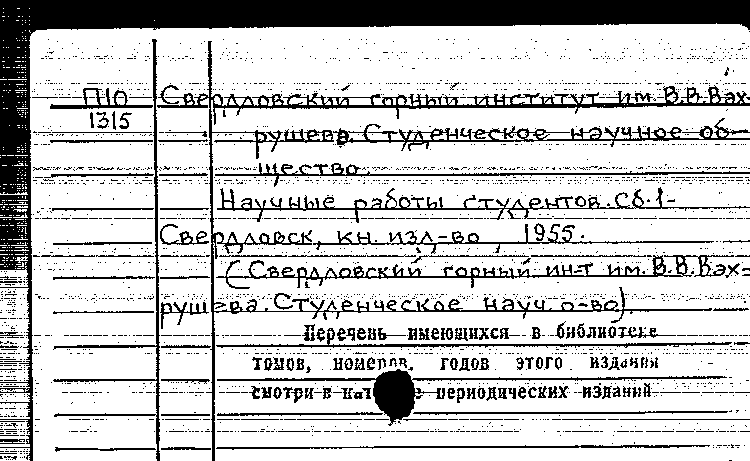 П10 Свердловский горный институт им. В.В.Вах-
1315 рушева. Студенческое научное об-
щество.
Научные работы студентов. Сб.1-
Свердловск, кн. изд-во, 1955.
(Свердловский горный ин-т им. В.В.Вах-
рушева. Студенческое науч. о-во).
Перечень имеющихся в библиотеке
томов, номеров, годов этого издания
смотри в периодических изданий